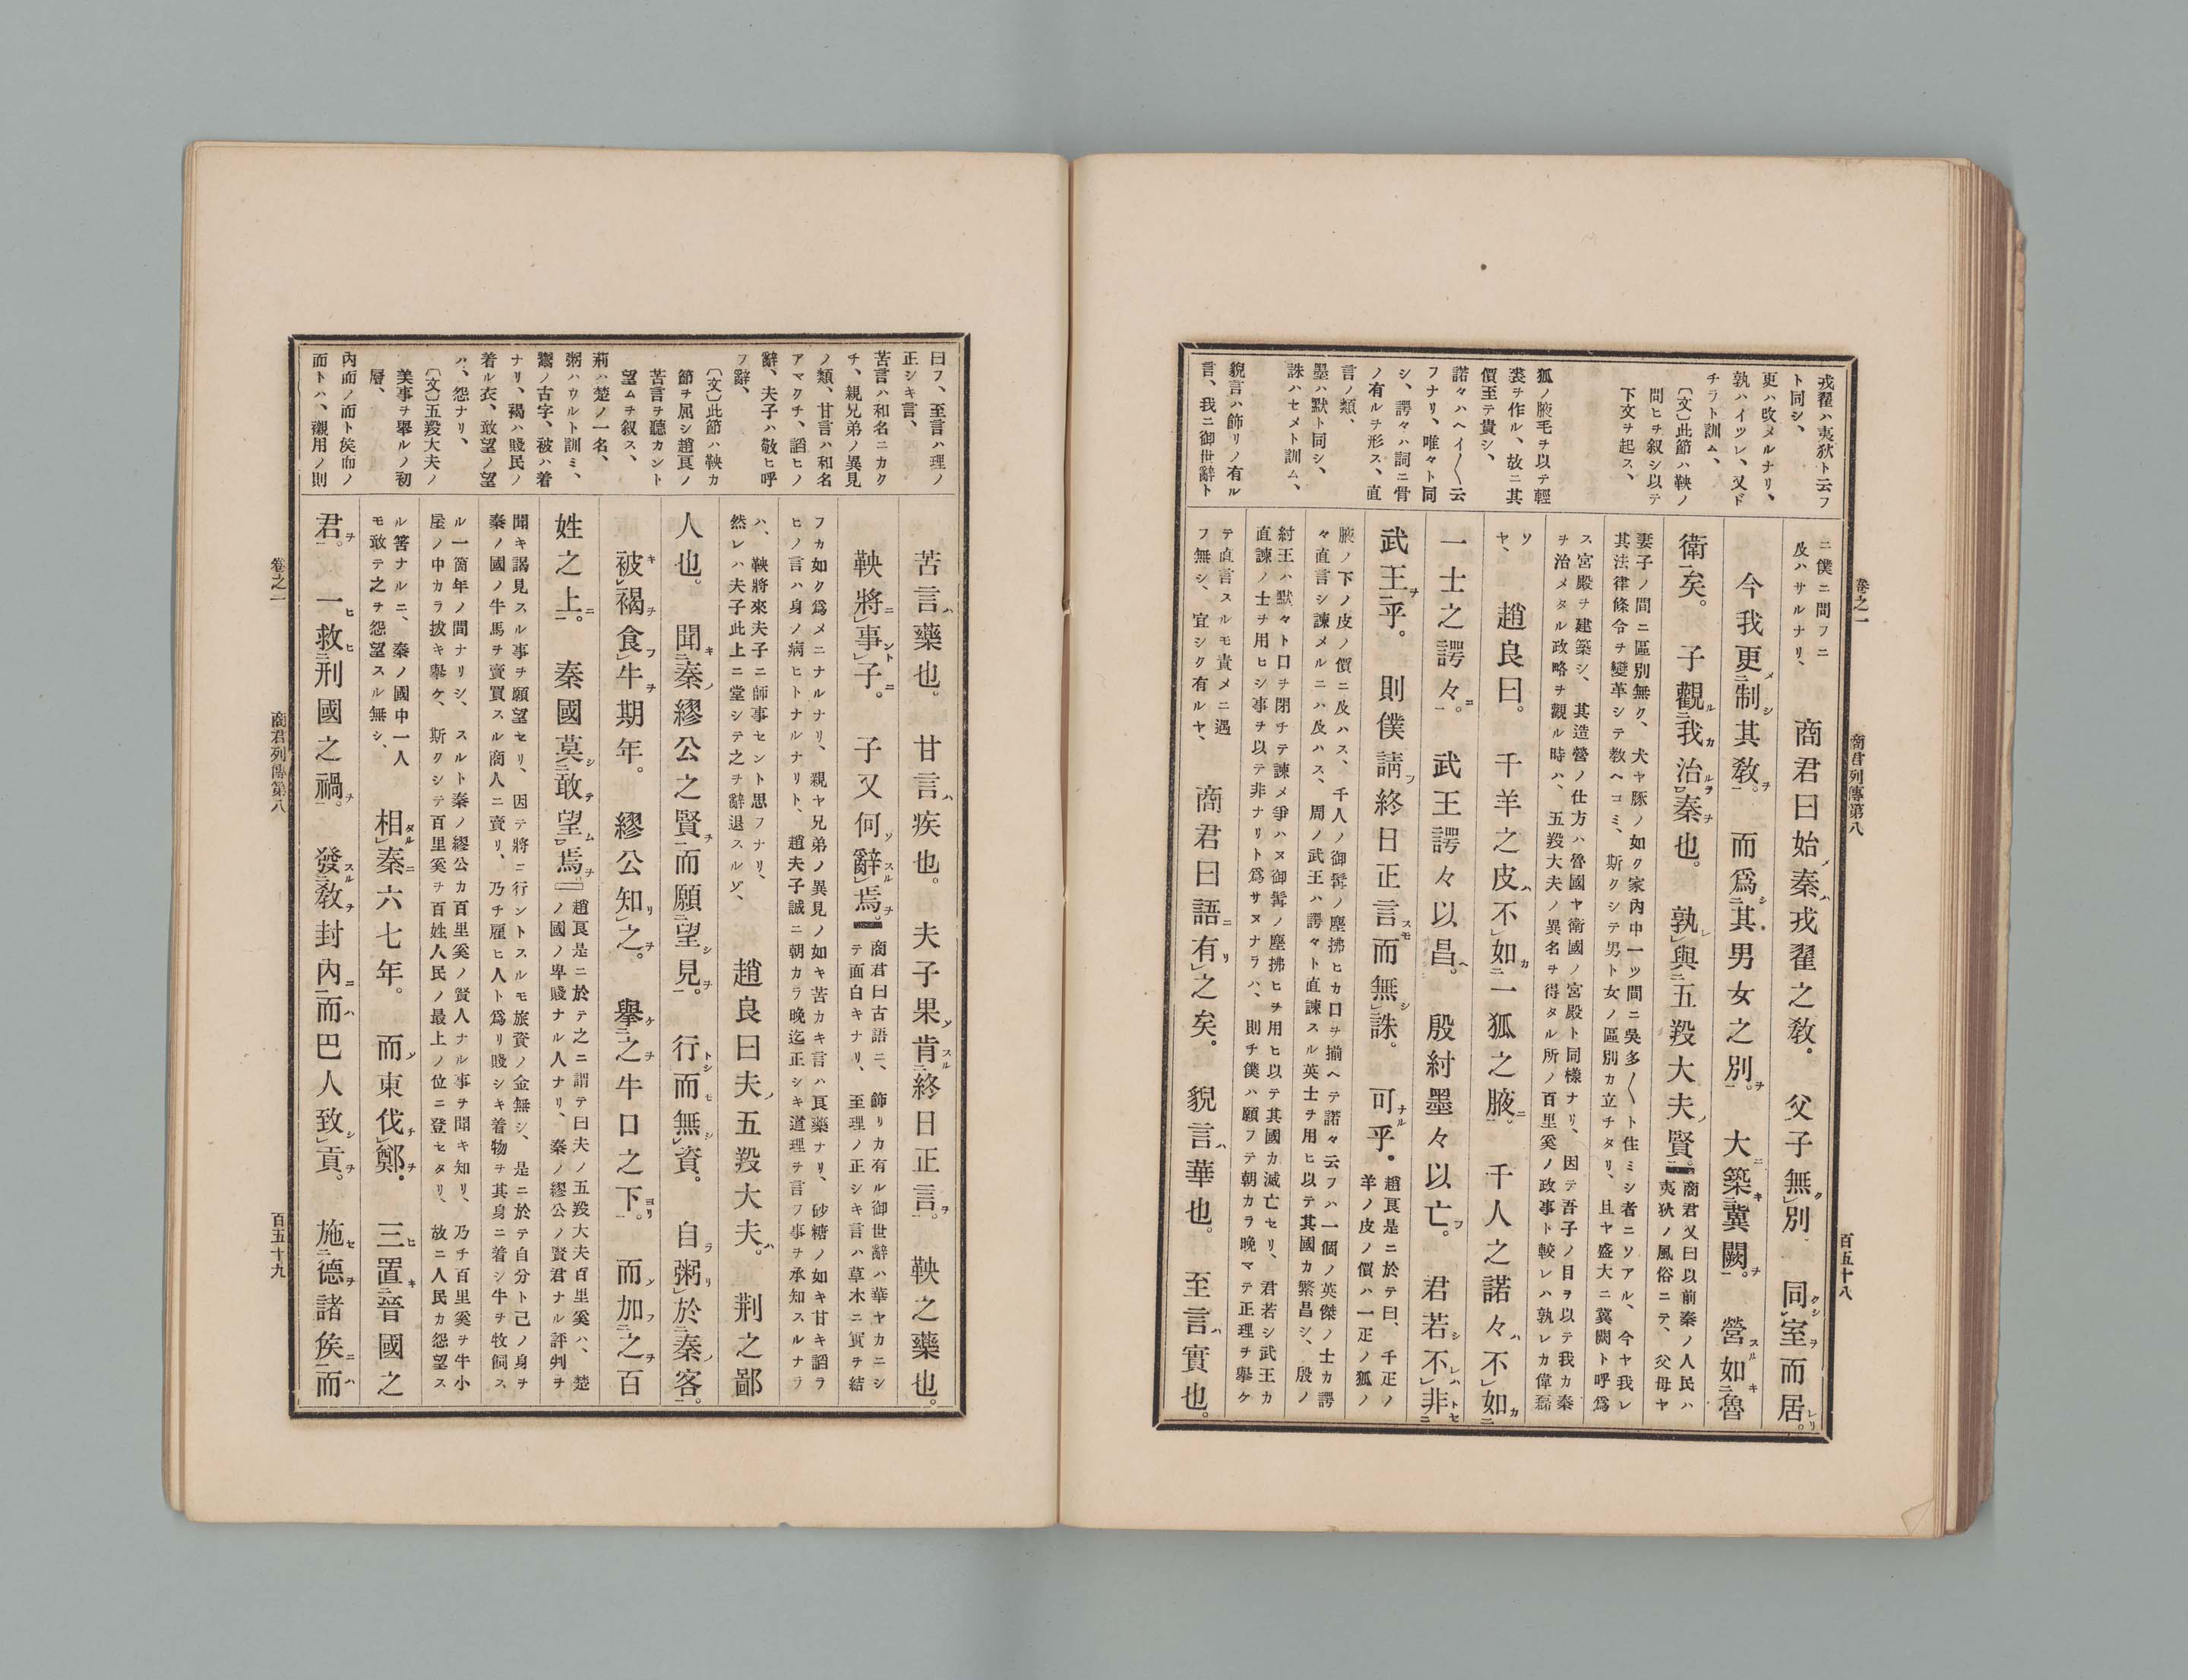 卷之一　商君列傳第八　百五十八
戎翟ハ夷狄ト云フ
ト同シ、
更ハ改メルナリ、
孰ハイツレ、又ド
チラト訓ム、
〔文〕此節ハ鞅ノ
問ヒヲ叙シ以テ
下文ヲ起ス、
狐ノ腋毛ヲ以テ輕
裘ヲ作ル、故ニ其
價至テ貴シ、
諾々ハヘイ〱云
フナリ、唯々ト同
シ、諤々ハ詞ニ骨
ノ有ルヲ形ス、直
言ノ類、
墨ハ默ト同シ、
誅ハセメト訓ム、
貌言ハ飾リノ有ル
言、我ニ御世辭ト
ニ僕ニ問フニ
及ハサルナリ、
商君曰始秦戎翟之敎。父子無別。同室而居。
今我更制其敎。而爲其男女之別。大築冀闕。營如魯
衛矣。子觀我治秦也。孰與五羖大夫賢。
商君又曰以前秦ノ人民ハ
夷狄ノ風俗ニテ、父母ヤ
妻子ノ間ニ區別無ク、犬ヤ豚ノ如ク家內中一ツ間ニ吳多〱ト住ミシ者ニソアル、今ヤ我レ
其法律條令ヲ變革シテ敎ヘコミ、斯クシテ男ト女ノ區別カ立チタリ、且ヤ盛大ニ冀闕ト呼爲
ス宮殿ヲ建築シ、其造營ノ仕方ハ魯國ヤ衛國ノ宮殿ト同樣ナリ、因テ吾子ノ目ヲ以テ我カ秦
ヲ治メタル政略ヲ觀ル時ハ、五羖大夫ノ異名ヲ得タル所ノ百里奚ノ政事ト較レハ孰レカ偉磊
ソ
ヤ、
趙良曰。千羊之皮不如一狐之腋。千人之諾々不如
一士之諤々。武王諤々以昌。殷紂墨々以亡。君若不非
武王乎。則僕請終日正言而無誅。可乎。
趙良是ニ於テ曰、千疋ノ
羊ノ皮ノ價ハ一疋ノ狐ノ
腋ノ下ノ皮ノ價ニ反ハス、千人ノ御髯ノ塵拂ヒカ口ヲ揃ヘテ諾々云フハ一個ノ英傑ノ士カ諤
々直言シ諫メルニハ及ハス、周ノ武王ハ諤々ト直諫スル英士ヲ用ヒ以テ其國カ繁昌シ、殷ノ
紂王ハ默々ト口ヲ閉チテ諫メ爭ハヌ御髯ノ塵拂ヒヲ用ヒ以テ其國カ滅亡セリ、君若シ武王カ
直諫ノ士ヲ用ヒシ事ヲ以テ非ナリト爲サヌナラハ、則チ僕ハ願フテ朝カラ晩マテ正理ヲ擧ケ
テ直言スルモ責メニ遇
フ無シ、宜シク有ルヤ、
商君曰語有之矣。貌言華也。至言實也。
曰フ、至言ハ理ノ
正シキ言、
苦言ハ和名ニカク
チ、親兄弟ノ異見
ノ類、甘言ハ和名
アマクチ、謟ヒノ
辭、夫子ハ敬ヒ呼
フ辭、
〔文〕此節ハ鞅カ
節ヲ屈シ趙良ノ
苦言ヲ聽カント
望ムヲ叙ス、
荊ハ楚ノ一名、
粥ハウルト訓ミ、
鬻ノ古字、被ハ着
ナリ、褐ハ賤民ノ
着ル衣、敢望ノ望
ハ、怨ナリ、
〔文〕五羖大夫ノ
美事ヲ擧ルノ初
層、
內而ノ而ト矦而ノ
而トハ、襯用ノ則
苦言藥也。甘言疾也。夫子果肯終日正言。鞅之藥也。
鞅將事子。子又何辭焉。
商君曰古語ニ、飾リカ有ル御世辭ハ華ヤカニシ
テ面白キナリ、至理ノ正シキ言ハ草木ニ實ヲ結
フカ如ク爲メニナルナリ、親ヤ兄弟ノ異見ノ如キ苦カキ言ハ良藥ナリ、砂糖ノ如キ甘キ謟ラ
ヒノ言ハ身ノ病ヒトナルナリト、趙夫子誠ニ朝カラ晩迄正シキ道理ヲ言フ事ヲ承知スルナラ
ハ、鞅將來夫子ニ師事セント思フナリ、
然レハ夫子此上ニ堂シテ之ヲ辭退スルゾ、
趙良曰夫五羖大夫。荆之鄙
人也。聞秦繆公之賢而願望見。行而無資。自粥於秦客。
被褐食牛期年。繆公知之。擧之牛口之下。而加之百
姓之上。秦國莫敢望焉。
趙良是ニ於テ之ニ謂テ曰夫ノ五羖大夫百里奚ハ、楚
ノ國ノ卑賤ナル人ナリ、秦ノ繆公ノ賢君ナル評判ヲ
聞キ謁見スル事ヲ願望セリ、因テ將ニ行ントスルモ旅資ノ金無シ、是ニ於テ自分ト己ノ身ヲ
秦ノ國ノ牛馬ヲ賣買スル商人ニ賣リ、乃チ雇ヒ人ト爲リ賤シキ着物ヲ其身ニ着シ牛ヲ牧飼ス
ル一箇年ノ間ナリシ、スルト秦ノ繆公カ百里奚ノ賢人ナル事ヲ聞キ知リ、乃チ百里奚ヲ牛小
屋ノ中カラ拔キ擧ケ、斯クシテ百里奚ヲ百姓人民ノ最上ノ位ニ登セタリ、故ニ人民カ怨望ス
ル筈ナルニ、秦ノ國中一人
モ敢テ之ヲ怨望スル無シ、
相秦六七年。而東伐鄭。三置晉國之
君。一救荆國之禍。發敎封內而巴人致貢。施德諸矦而
卷之一　商君列傳第八　百五十九